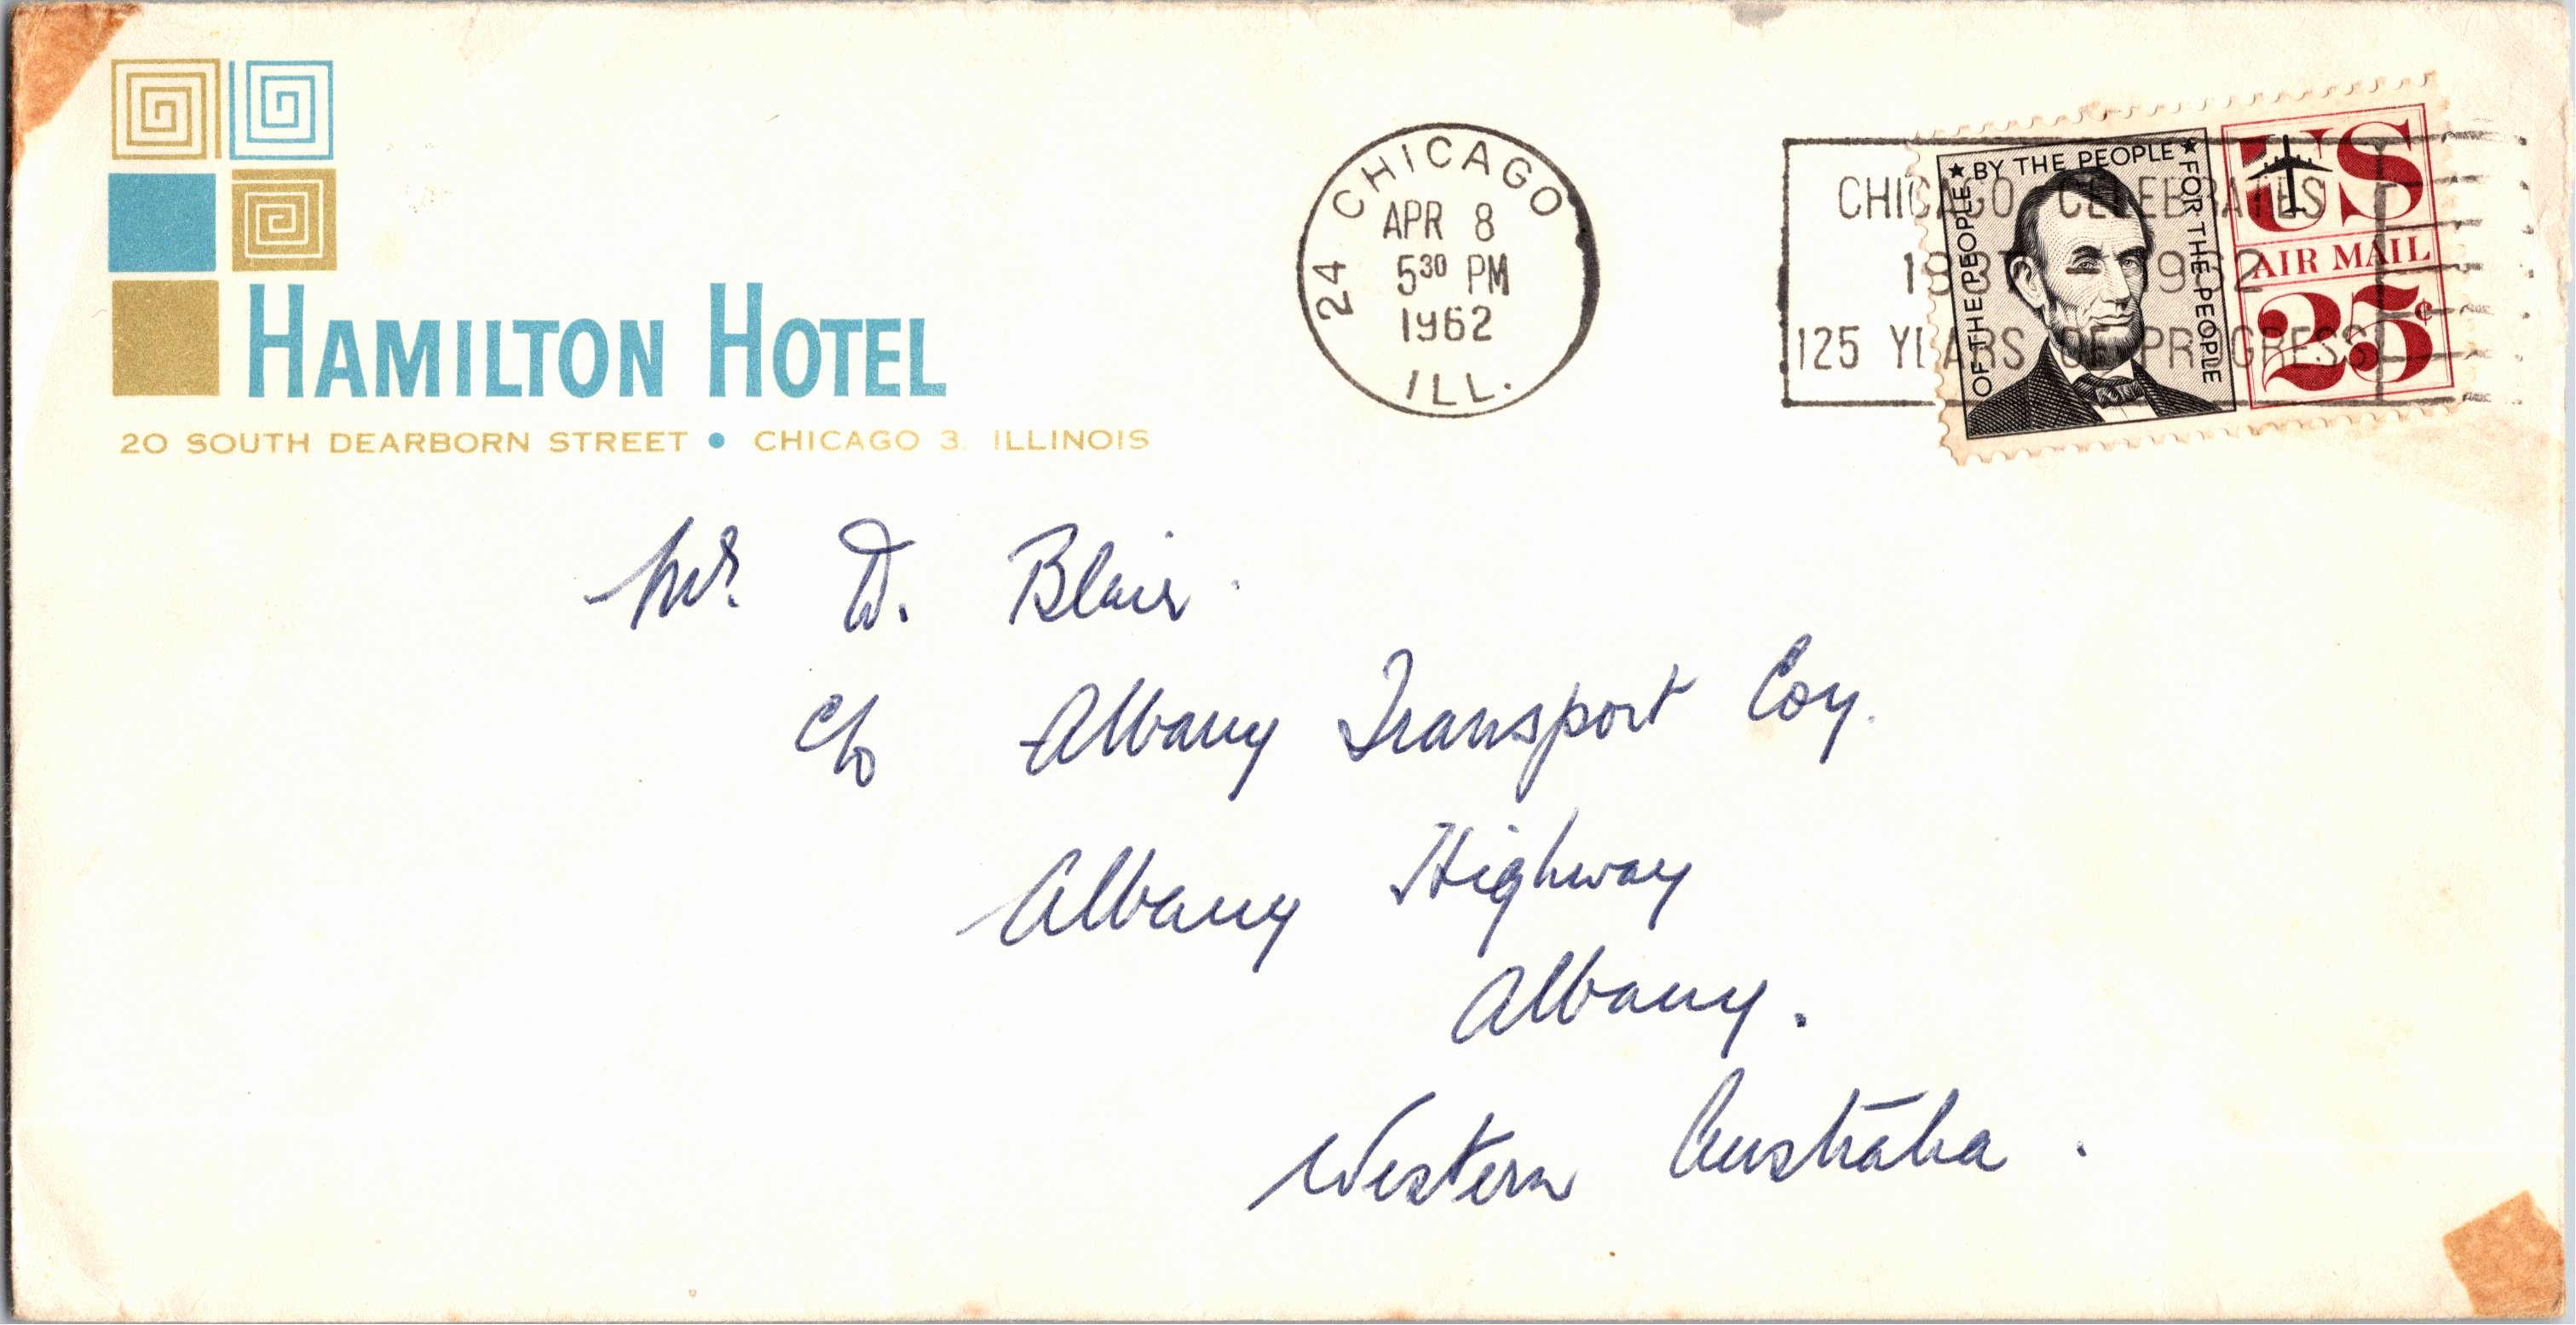 HAMILTON HOTEL
20 SOUTH DEARBORN STREET • CHICAGO 3. ILLINOIS
24 CHICAGO
APR 8
5 30 PM
1962
ILL.
CHICAGO CELEBRATES
1837 - 1962
125 YEARS OF PROGRESS
OF THE PEOPLE ★ BY THE PEOPLE ★ FOR THE PEOPLE
US
AIR MAIL
25¢
Mr. D. Blair.
c/o Albany Transport Coy.
Albany Highway
Albany.
Western Australia.